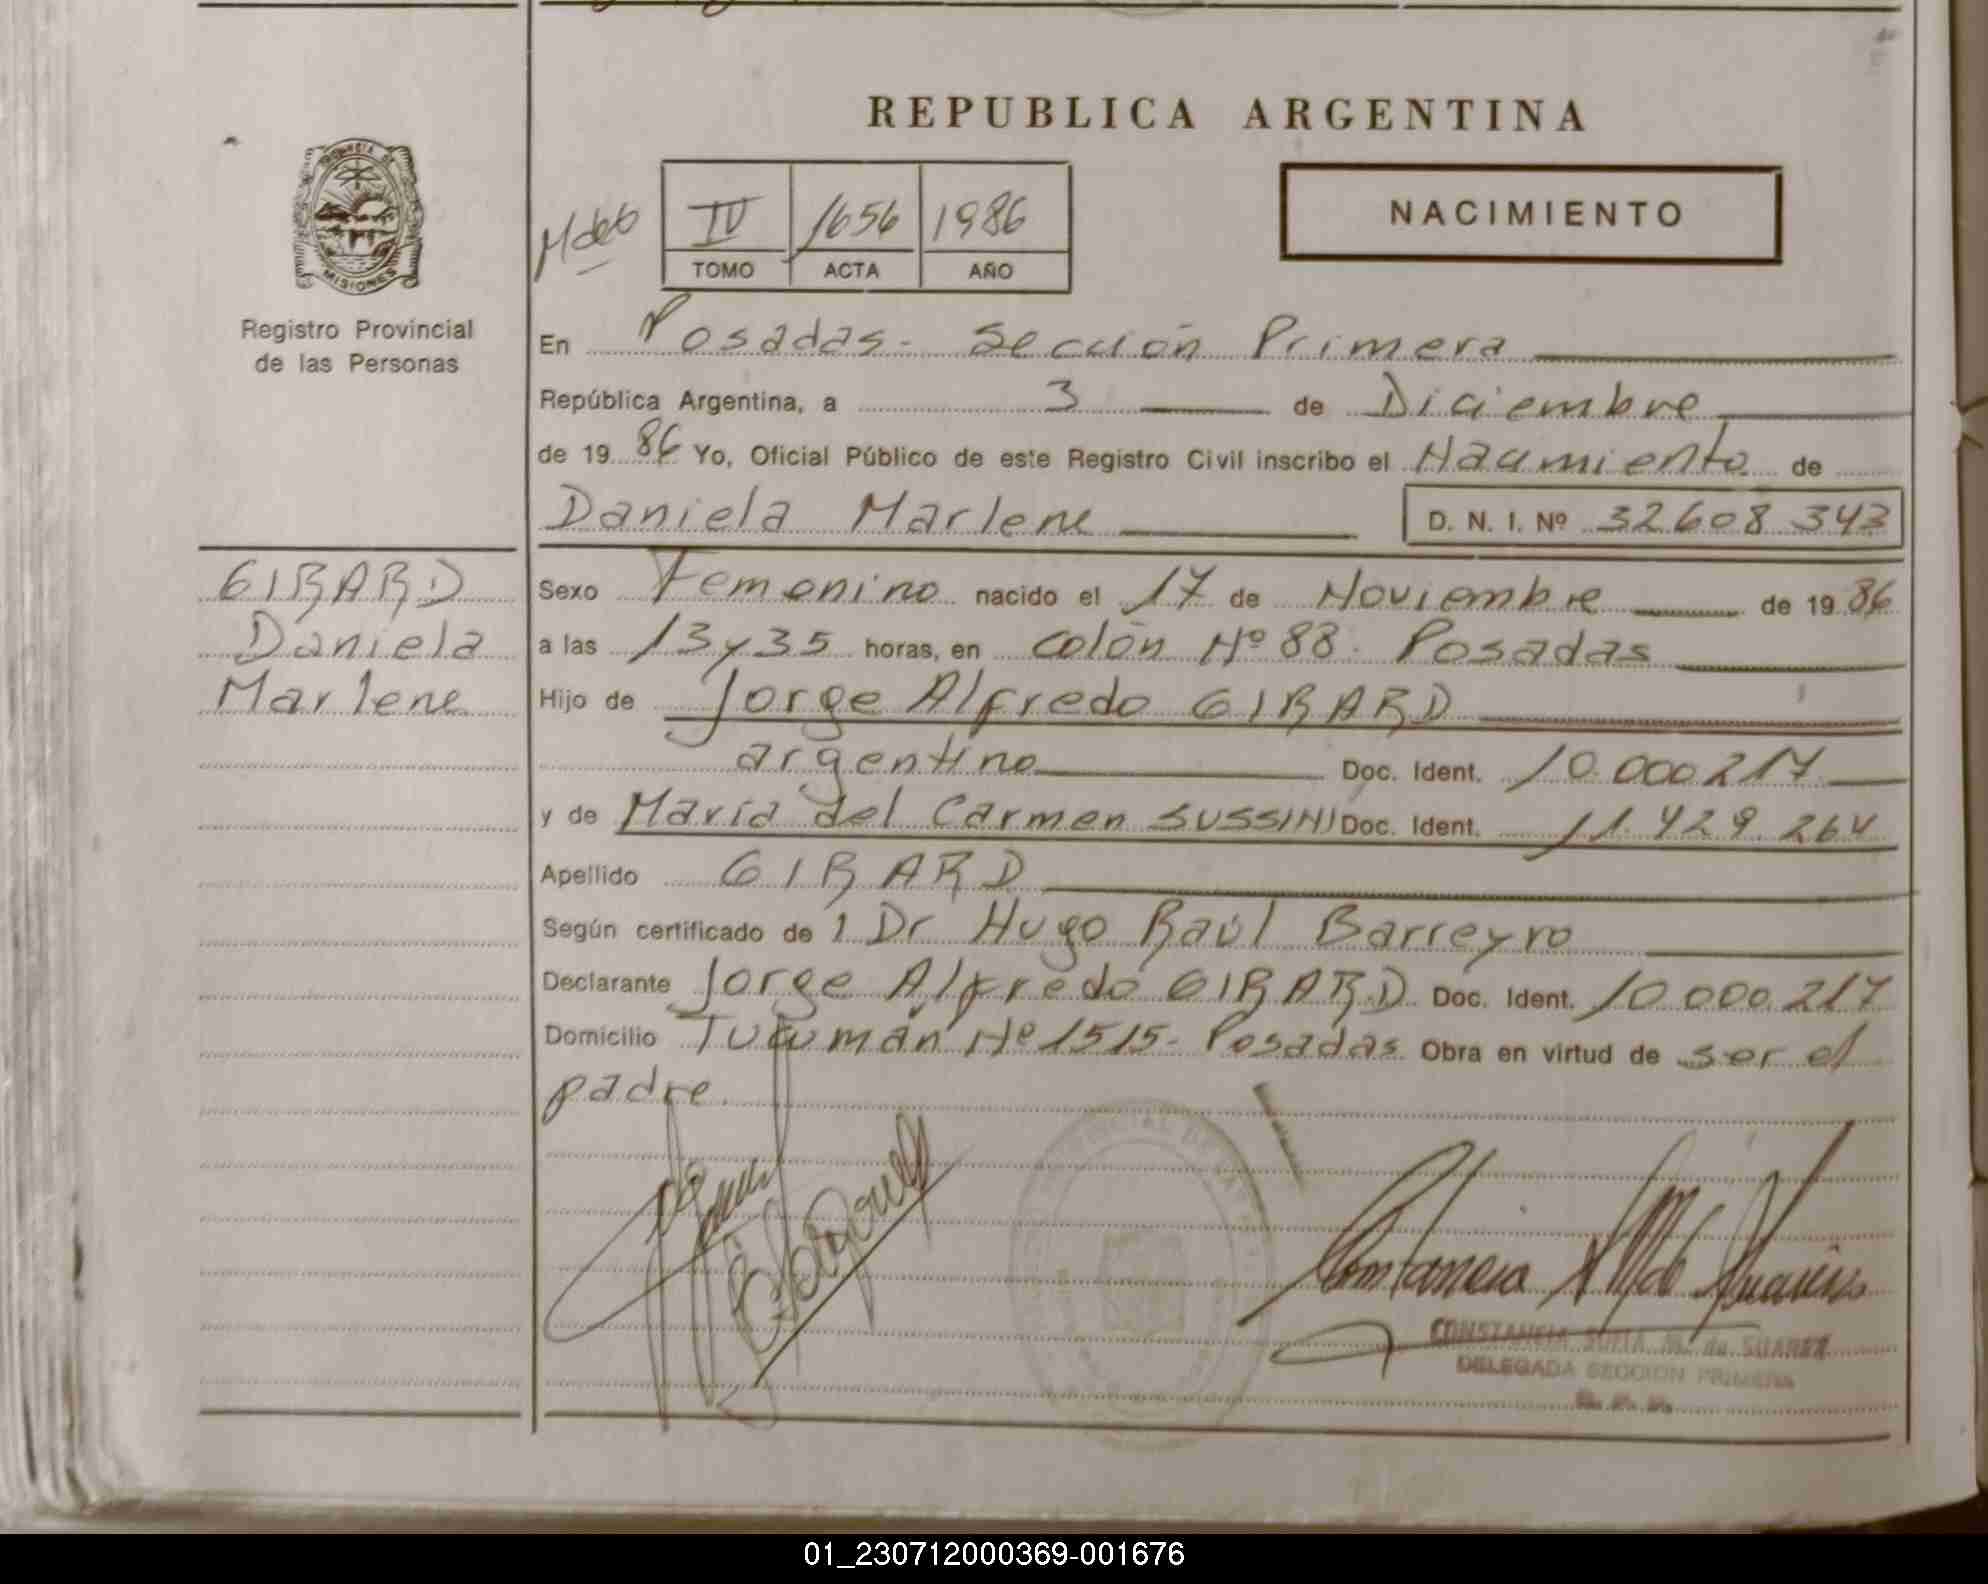 REPUBLICA ARGENTINA
PROVINCIA DE MISIONES
Registro Provincial
de las Personas
IV 1656 1986
TOMO ACTA AÑO
NACIMIENTO
En Posadas - Sección Primera
República Argentina, a 3 de Diciembre
de 19 86 Yo, Oficial Público de este Registro Civil inscribo el Nacimiento de
Daniela Marlene D. N. I. Nº 32608 343
GIRARD
Daniela
Marlene
Sexo Femenino nacido el 17 de Noviembre de 19 86
a las 13 y 35 horas, en Colón Nº 88. Posadas
Hijo de Jorge Alfredo GIRARD
argentino Doc. Ident. 10.000.217
y de María del Carmen SUSSINI Doc. Ident. 11.429.264
Apellido GIRARD
Según certificado de l Dr Hugo Raúl Barreyro
Declarante Jorge Alfredo GIRARD Doc. Ident. 10.000.217
Domicilio Tucumán Nº 1515 - Posadas Obra en virtud de ser el
padre.
CONSTANCIA SOFIA M. de SUAREZ
DELEGADA SECCION PRIMERA
01_230712000369-001676